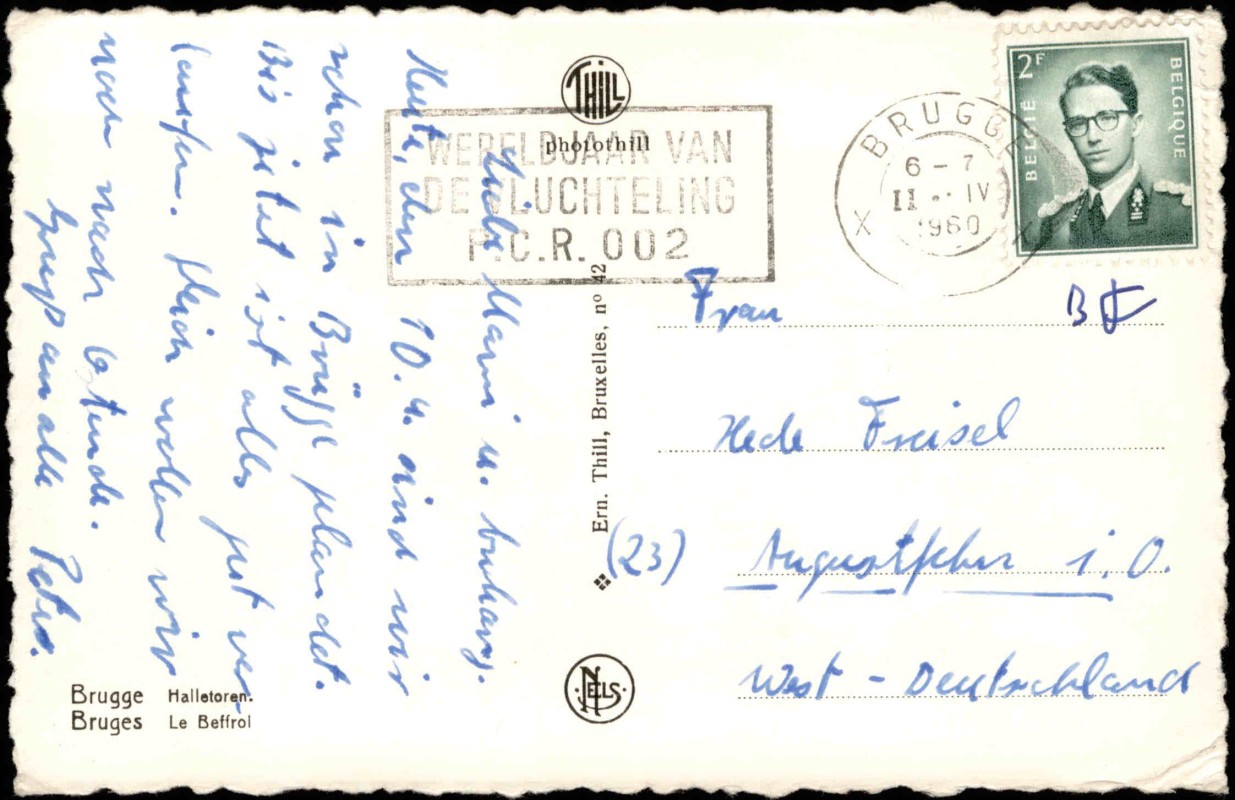 Liebe Mami u.
Heute, den 10.4. sind wir
schon in Brügge gelandet.
Bis jetzt ist alles gut ver-
laufen. Gleich wollen wir
noch nach Ostende.
Gruß an alle Peter.
Brugge Halletoren.
Bruges Le Beffroi
THILL
photothill
WERELDJAAR VAN
DE VLUCHTELING
P.C.R. 002
Ern. Thill, Bruxelles, nº 42
NELS
BRUGGE
6 - 7
II IV
1960
X X
2F
BELGIË
BELGIQUE
Frau
Hede Freisel
(23) Augustfehn i. O.
West - Deutschland